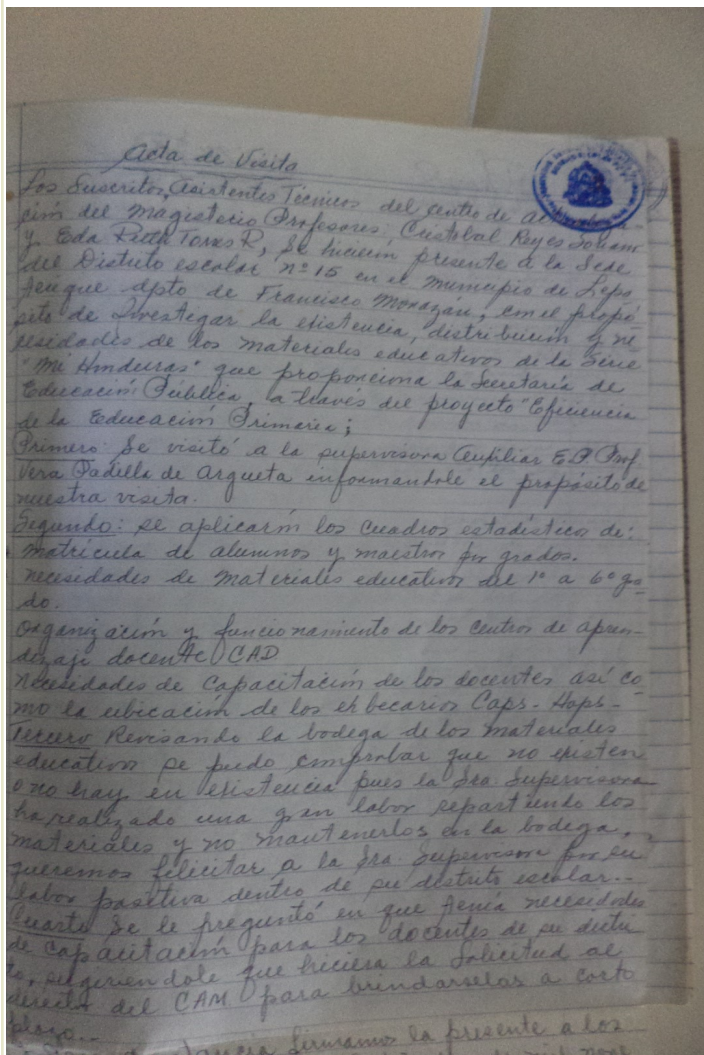 Acta de Visita
Los Suscritos, Asistentes Técnicos del centro de
ción del Magisterio Profesores: Cristobal Reyes
y Eda Torres R, Se hicieron presente a la Sede
del Distrito escolar nº 15 en el municipio de Lepa
terique dpto de Francisco Morazán, con el propó
sito de Investigar la existencia, distribución y ne
cesidades de los materiales educativos de la Serie
"Mi Honduras" que proporciona la Secretaría de
Educación Pública, a través del proyecto "Eficiencia
de la Educación Primaria;
Primero: Se visitó a la supervisora Auxiliar E.P. Prof
Vera Padilla de Argueta informandole el propósito de
nuestra visita.
Segundo: se aplicaron los cuadros estadísticos de:
matrícula de alumnos y maestros por grados.
necesidades de materiales educativos del 1º a 6º gra
do.
Organización y funcionamiento de los centros de apren-
dizaje docente CAD
Necesidades de Capacitación de los docentes así co
mo la ubicación de los exbecarios Caps - Haps -
Tercero Revisando la bodega de los materiales
educativos se pudo comprobar que no existen
o no hay en existencia pues la Sra. Supervisora
ha realizado una gran labor repartiendo los
materiales y no mantenerlos en la bodega,
queremos felicitar a la Sra. Supervisora por su
labor positiva dentro de su distrito escolar.-
Cuarto Se le preguntó en que tenía necesidades
de capacitación para los docentes de su distri
to, sugiriendole que hiciera la solicitud al
director del CAM para brindarselas a corto
plazo.-
firmamos la presente a los